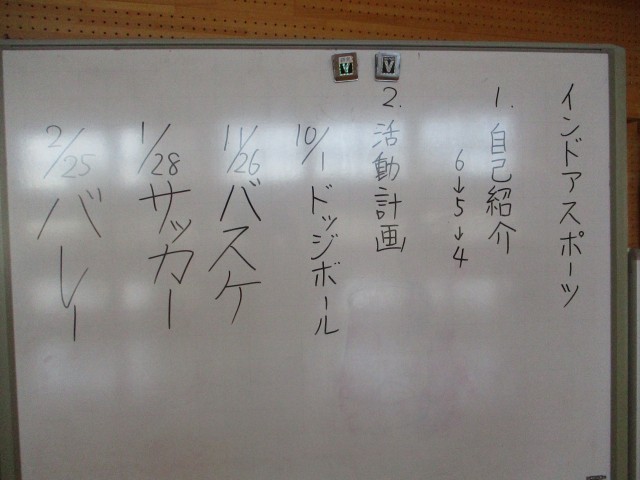 インドアスポーツ
1. 自己紹介
6→5→4
2. 活動計画
10/1 ドッジボール
11/26 バスケ
1/28 サッカー
2/25 バレー